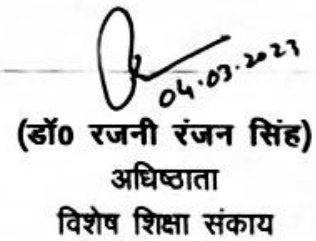 04.03.2023
(डॉ0 रजनी रंजन सिंह)
अधिष्ठाता
विशेष शिक्षा संकाय